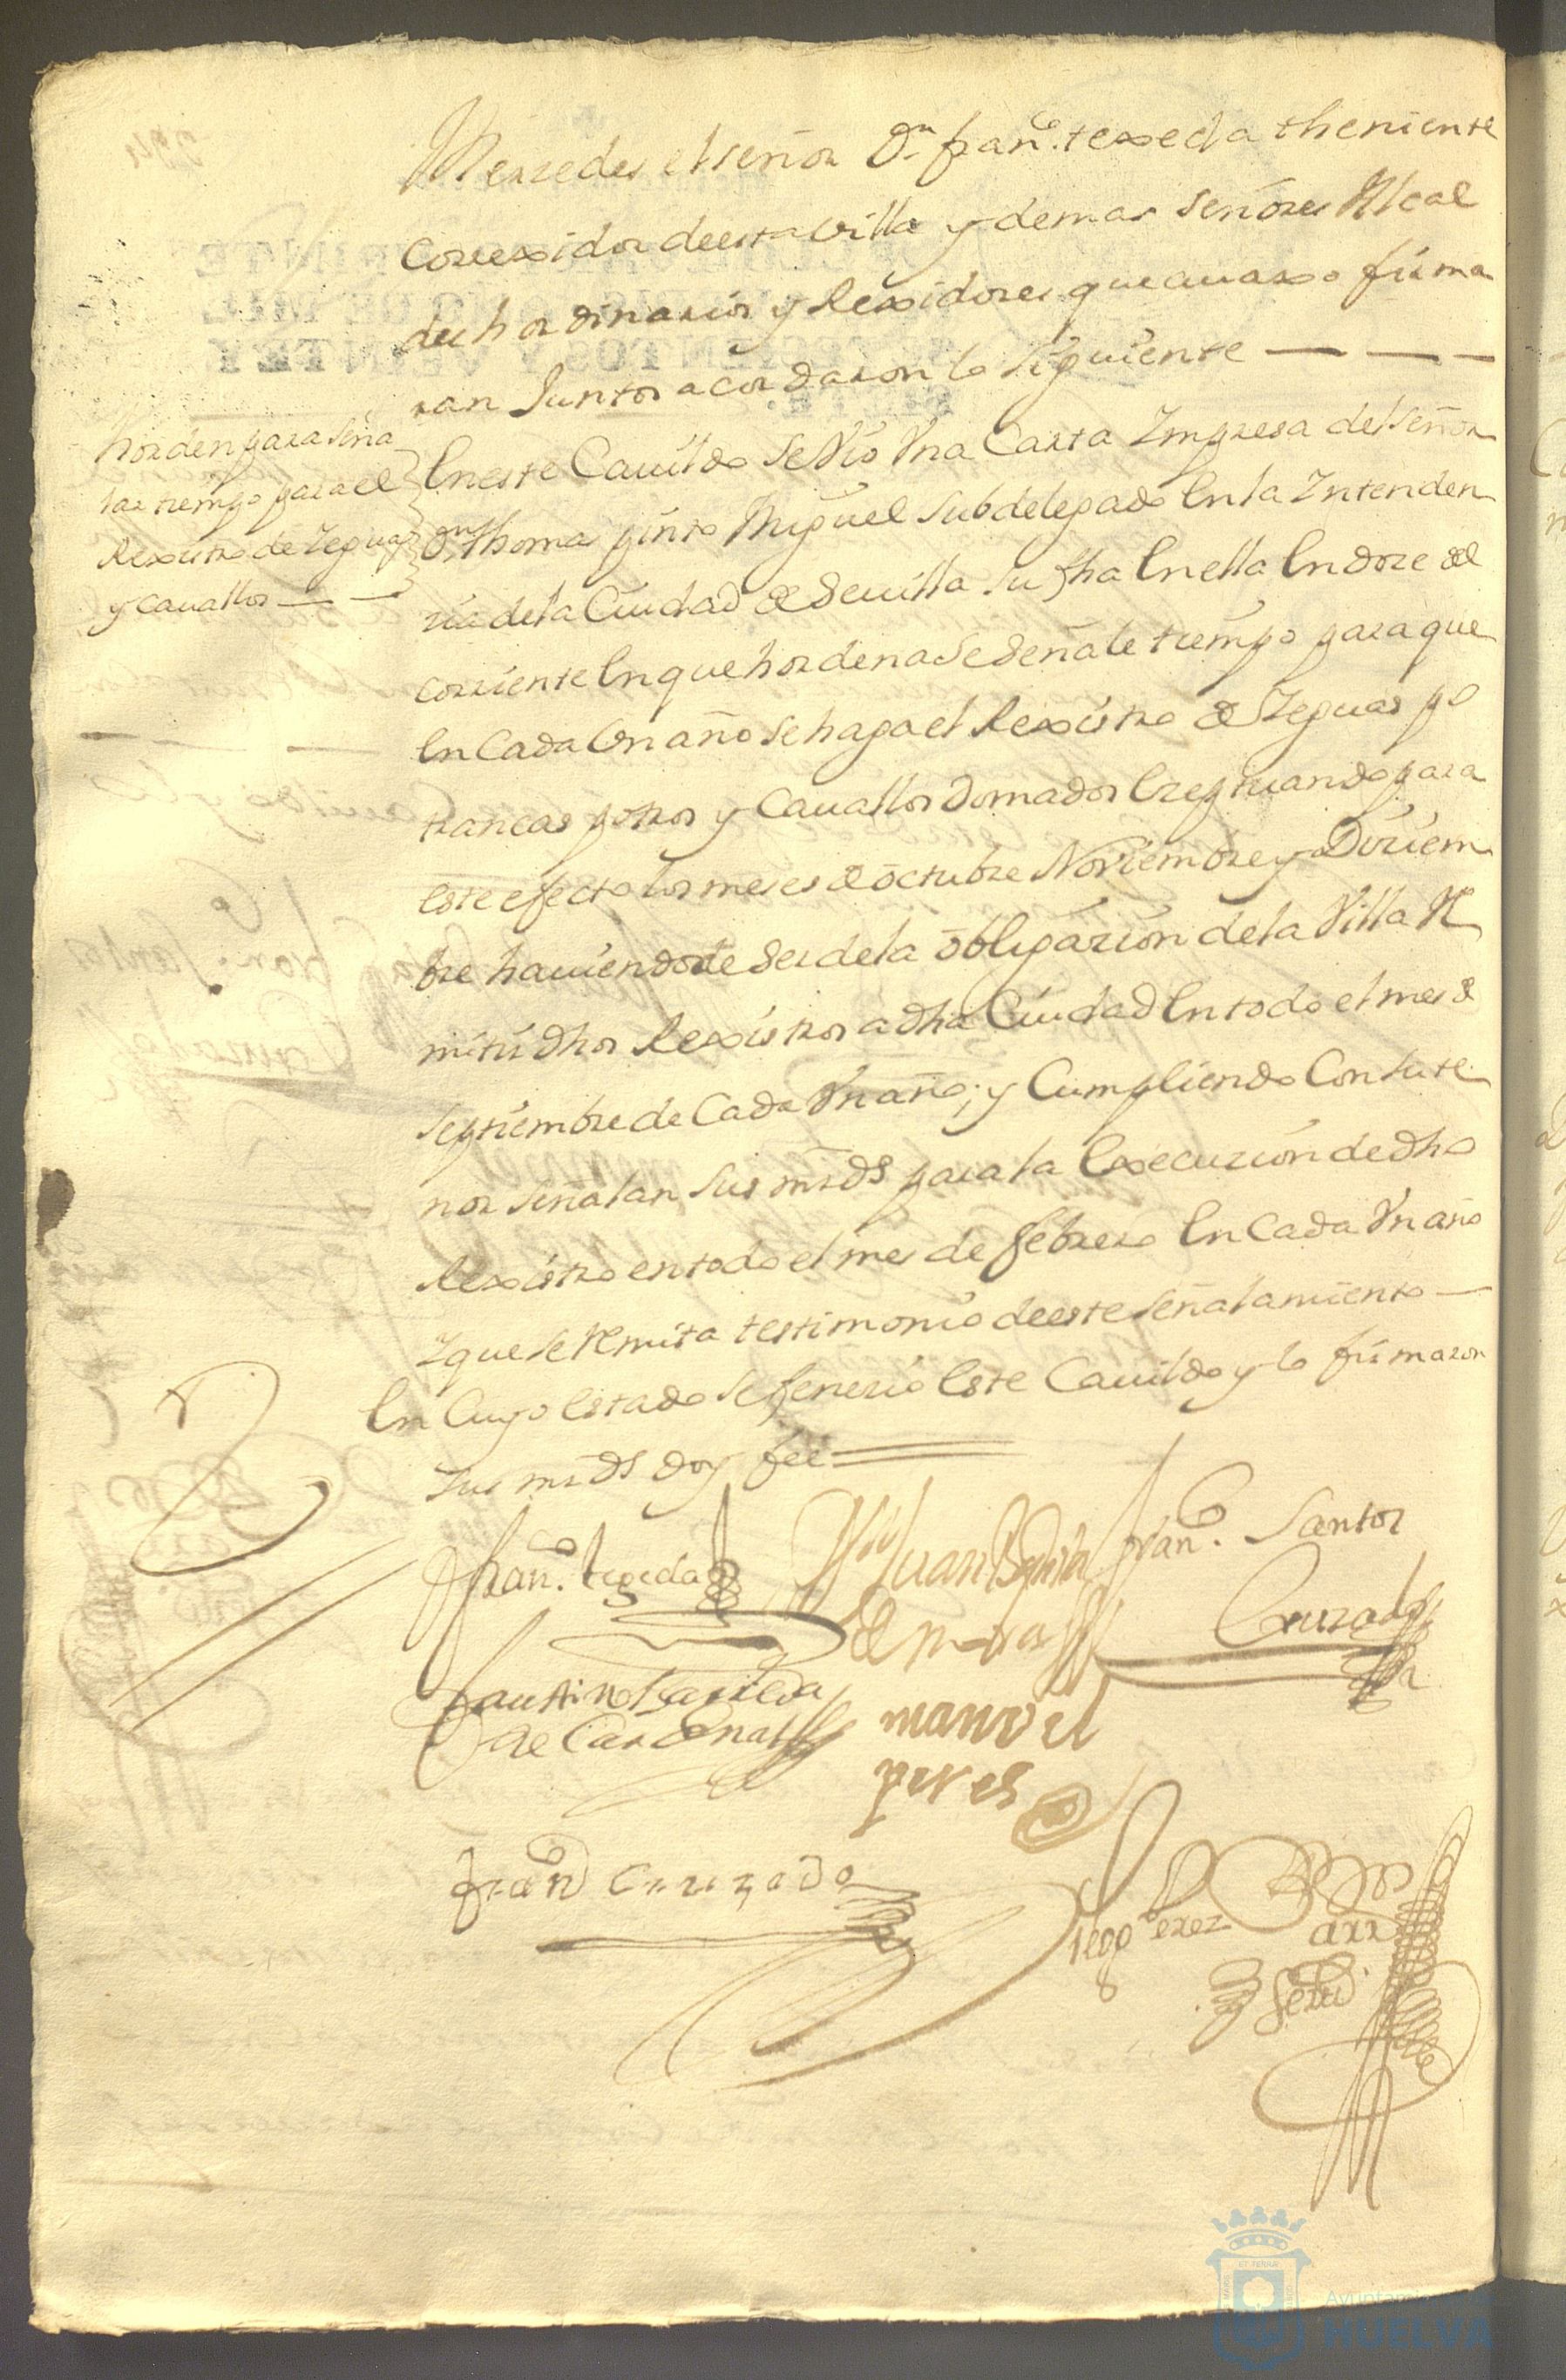 Merzedes el señor Dn. franco. texeda theniente
Correxidor deesta villa y demas señores Alcal
des hordinarios y Rexidores que auaxo firma
ran Juntos acordaron lo siguiente
horden para seña
lar tiempo para el
Rexistro de Yeguas
y cauallos
En este Cauildo se Vio Vna Carta Impresa del Señor
Dn. thomas pinto Miguel Subdelegado En la Intenden
zia de la Ciudad de Seuilla su fha En ella En doze del
corriente En que hordena se Señale tiempo para que
En Cada Vn año se haga el Rexistro de Yeguas po
trancas potros y Cauallos Domados Exeptuando para
este efecto los meses de octubre Noviembre y Diziem
bre hauiendo de ser de la obligazion de la Villa Re
mitir dhos Rexistros a dha Ciudad En todo el mes de
septiembre de Cada Vn año; y Cumpliendo Con su te
nor señalan sus mrds para la Execuzion de dho
Rexistro en todo el mes de febrero En Cada Vn año
Y que se Remita testimonio de este señalamiento
En Cuyo estado se fenezio Este Cauildo y lo firmaron
sus mrds doy fee
franco. texeda
Juan
franco. Santos
Cruzado
faustino
de Cardenas
manvel
peres
franco Cruzado
Diego Perez
Ayuntamiento de
HUELVA